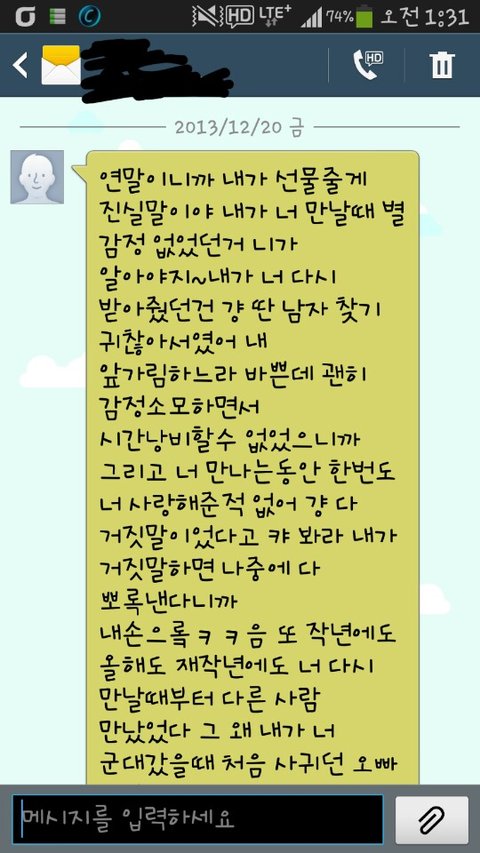 HD LTE+ 74% 오전 1:31
HD
2013/12/20 금
연말이니까 내가 선물줄게
진실말이야 내가 너 만날때 별
감정 없었던거 니가
알아야지~내가 너 다시
받아줬던건 걍 딴 남자 찾기
귀찮아서였어 내
앞가림하느라 바쁜데 괜히
감정소모하면서
시간낭비할수 없었으니까
그리고 너 만나는동안 한번도
너 사랑해준적 없어 걍 다
거짓말이었다고 캬 봐라 내가
거짓말하면 나중에 다
뽀록낸다니까
내손으롴ㅋㅋ음 또 작년에도
올해도 재작년에도 너 다시
만날때부터 다른 사람
만났었다 그 왜 내가 너
군대갔을때 처음 사귀던 오빠
메시지를 입력하세요